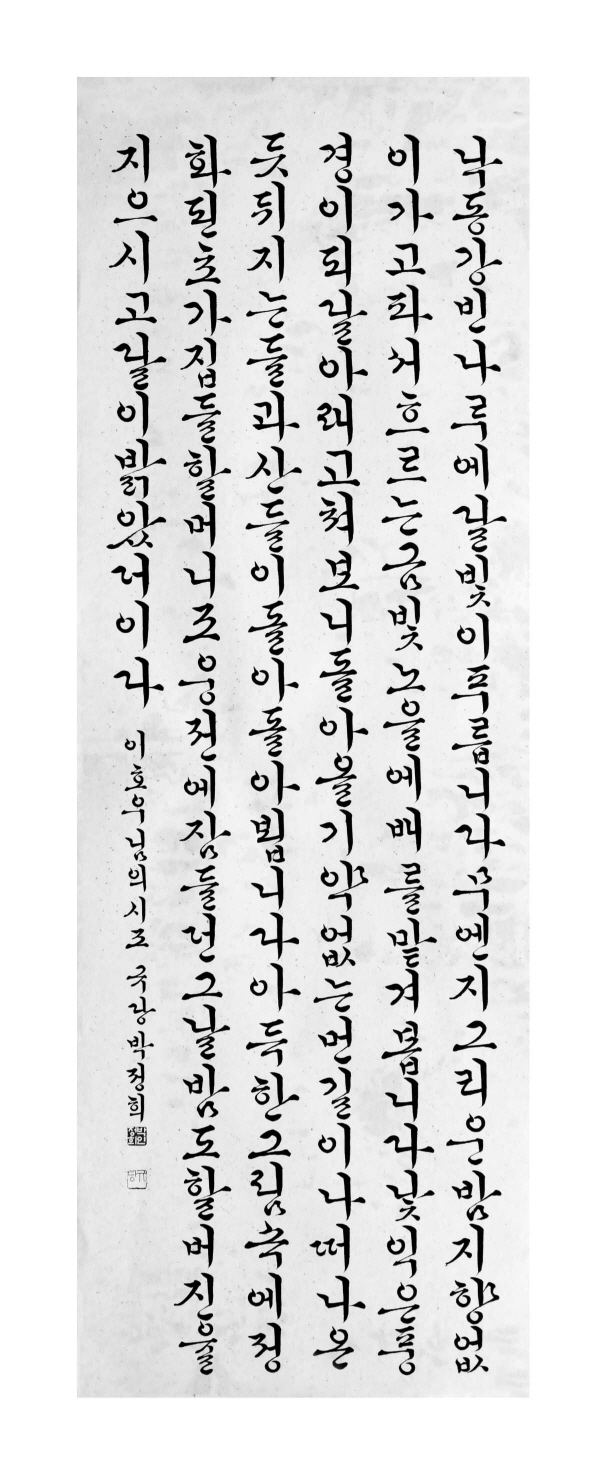 낙동강빈나루에달빛이푸릅니다무엔지그리운밤지향없
이가고파서흐르는금빛노을에배를맡겨봅니다낯익은풍
경이되달아래고쳐보니돌아올기약없는먼길이나떠나온
듯뒤지는들과산들이돌아돌아뵙니다아득한그림속에정
화된초가집들할머니조웅전에잠들던그날밤도할버진율
지으시고달이밝았더이다 이호우님의시조 국당박정희